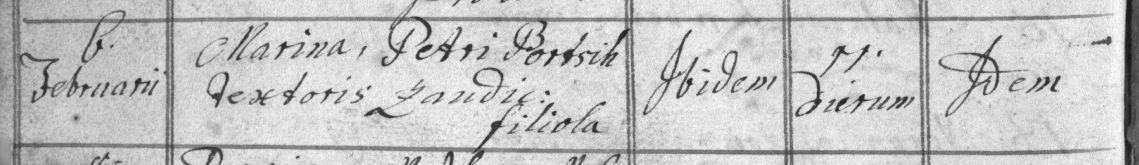 6.
Februarii
Marina, Petri Portsih
textoris
filiola
Ibidem
11.
dierum
Idem